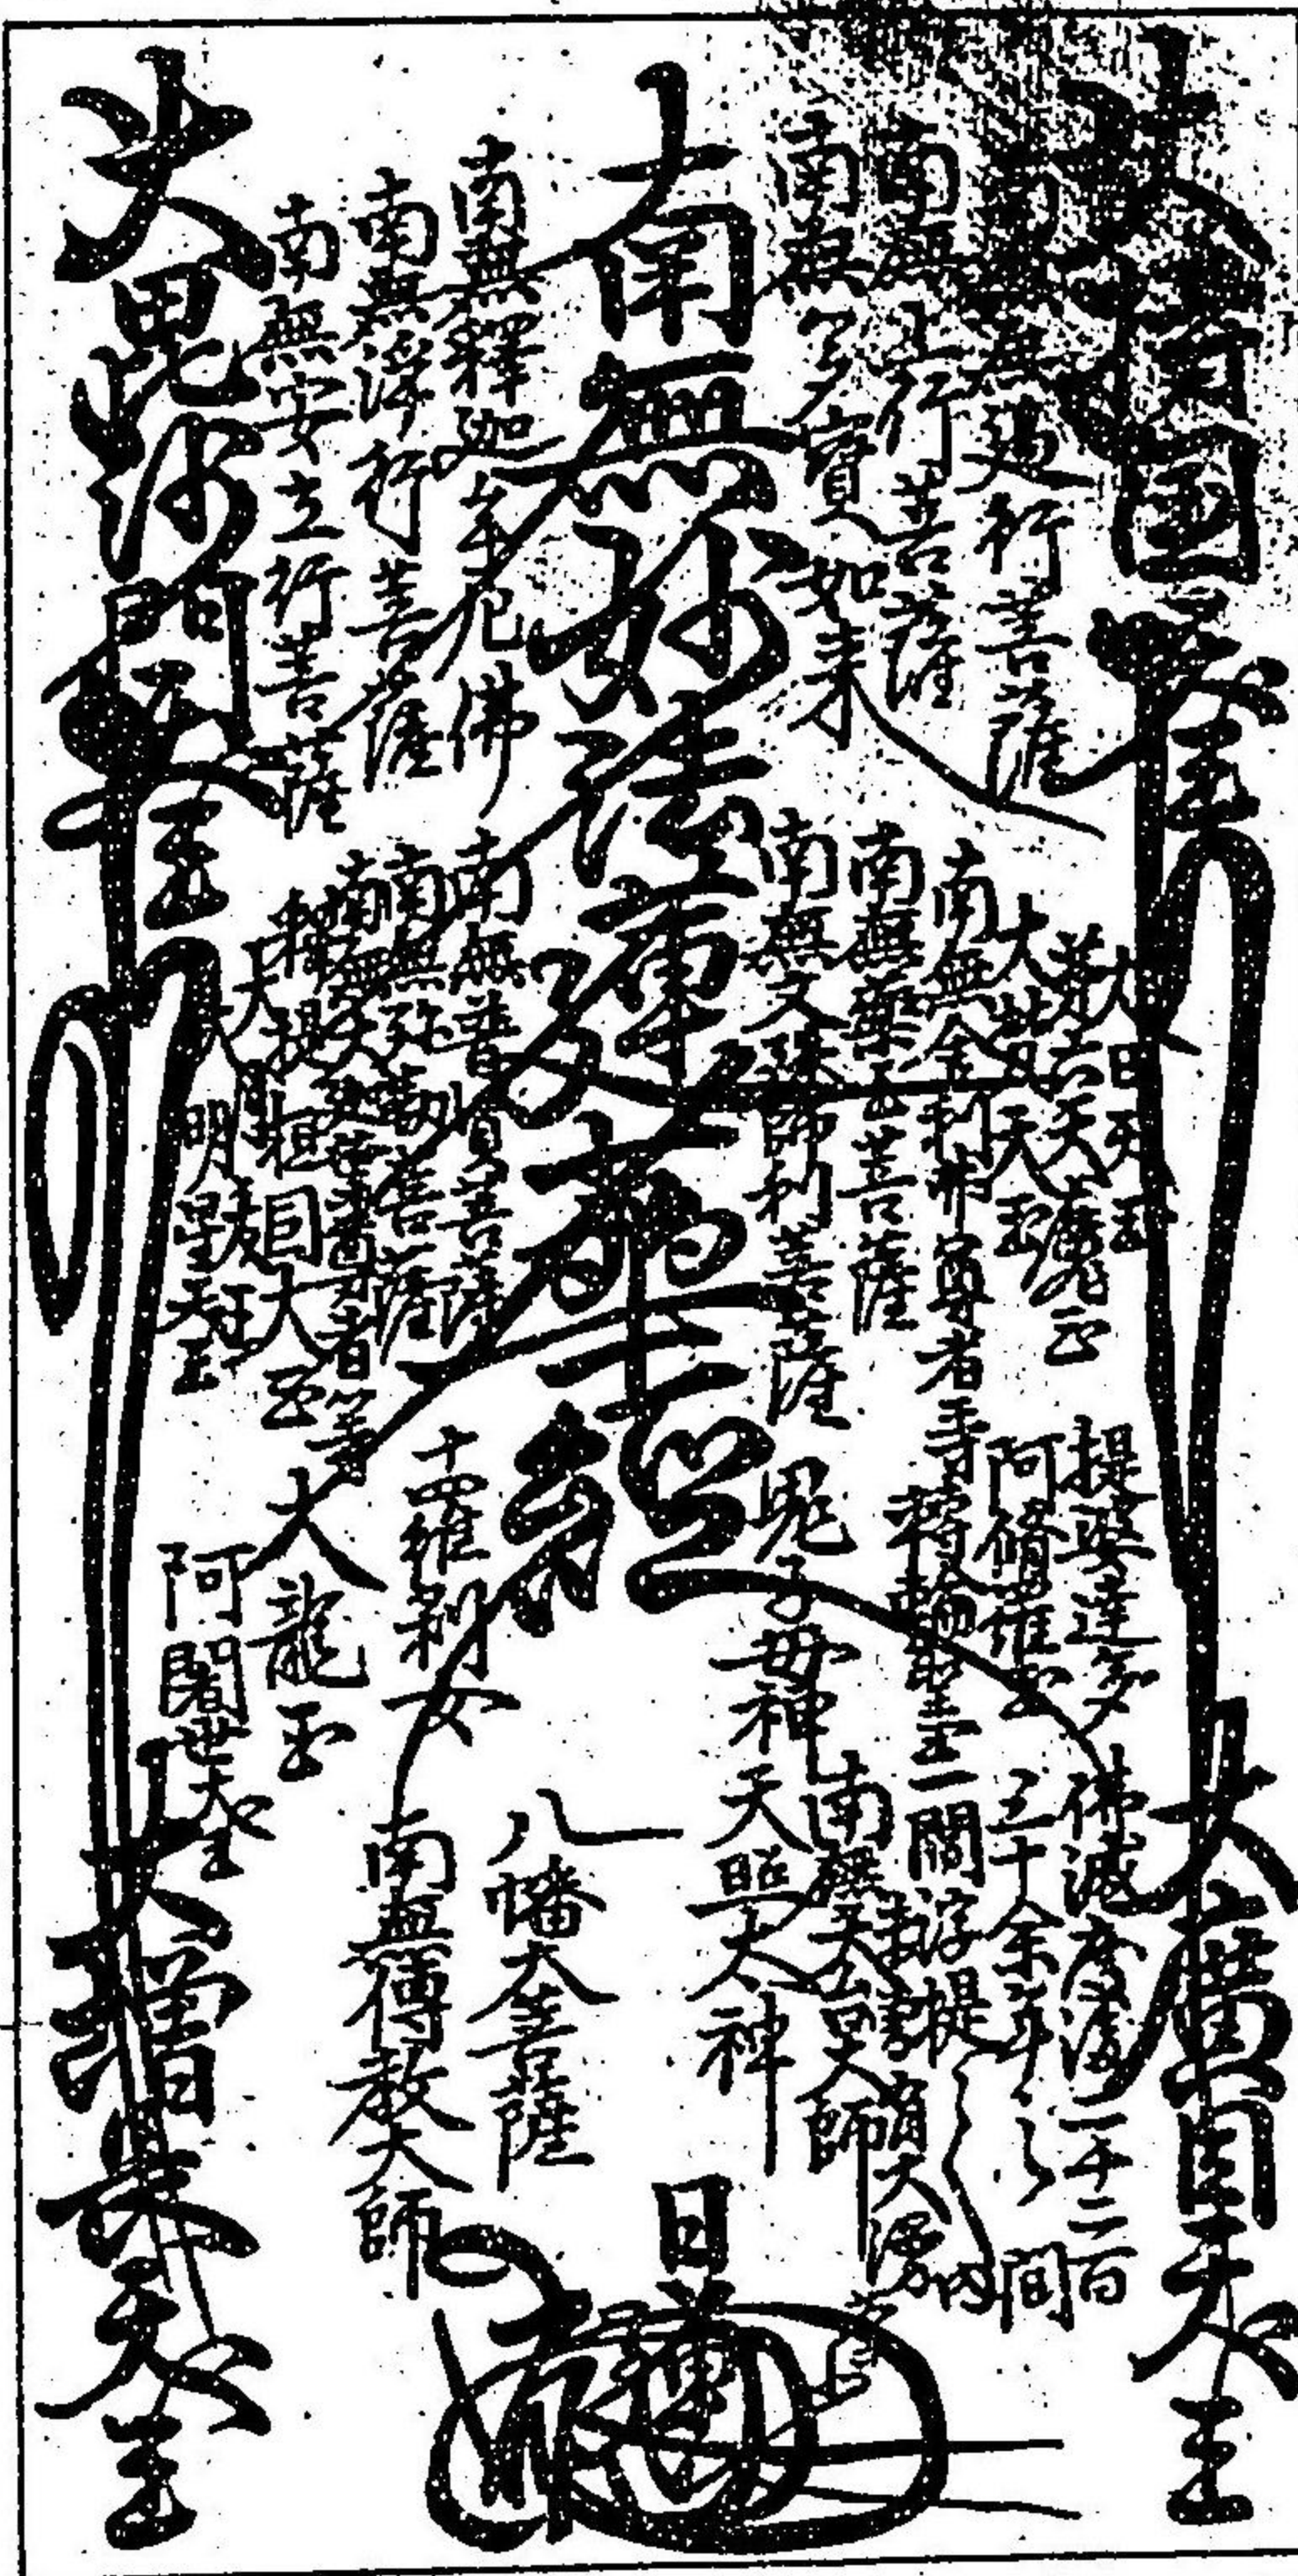 大持国天王
南無無辺行菩薩
南無上行菩薩
南無多寶如来
南無妙法蓮華經
南無釋迦牟尼佛
南無浄行菩薩
南無安立行菩薩
大毘沙門天王
大日天王
第六天魔王
大梵天王
南無舎利弗尊者等
南無藥王菩薩
南無文殊師利菩薩
南無普賢菩薩
南無弥勒菩薩
南無大迦葉尊者等
釋提桓因大王
大月天王
大明星天王
提婆達多
阿脩羅王
轉輪聖王
鬼子母神
十羅刹女
大龍王
阿闍世大王
大廣目天王
佛滅度後二千二百
三十余年之間
一閻浮提之内
未曾有大漫荼
羅也
南無天台大師
天照太神
八幡大菩薩
南無傳教大師
大増長天王
日蓮